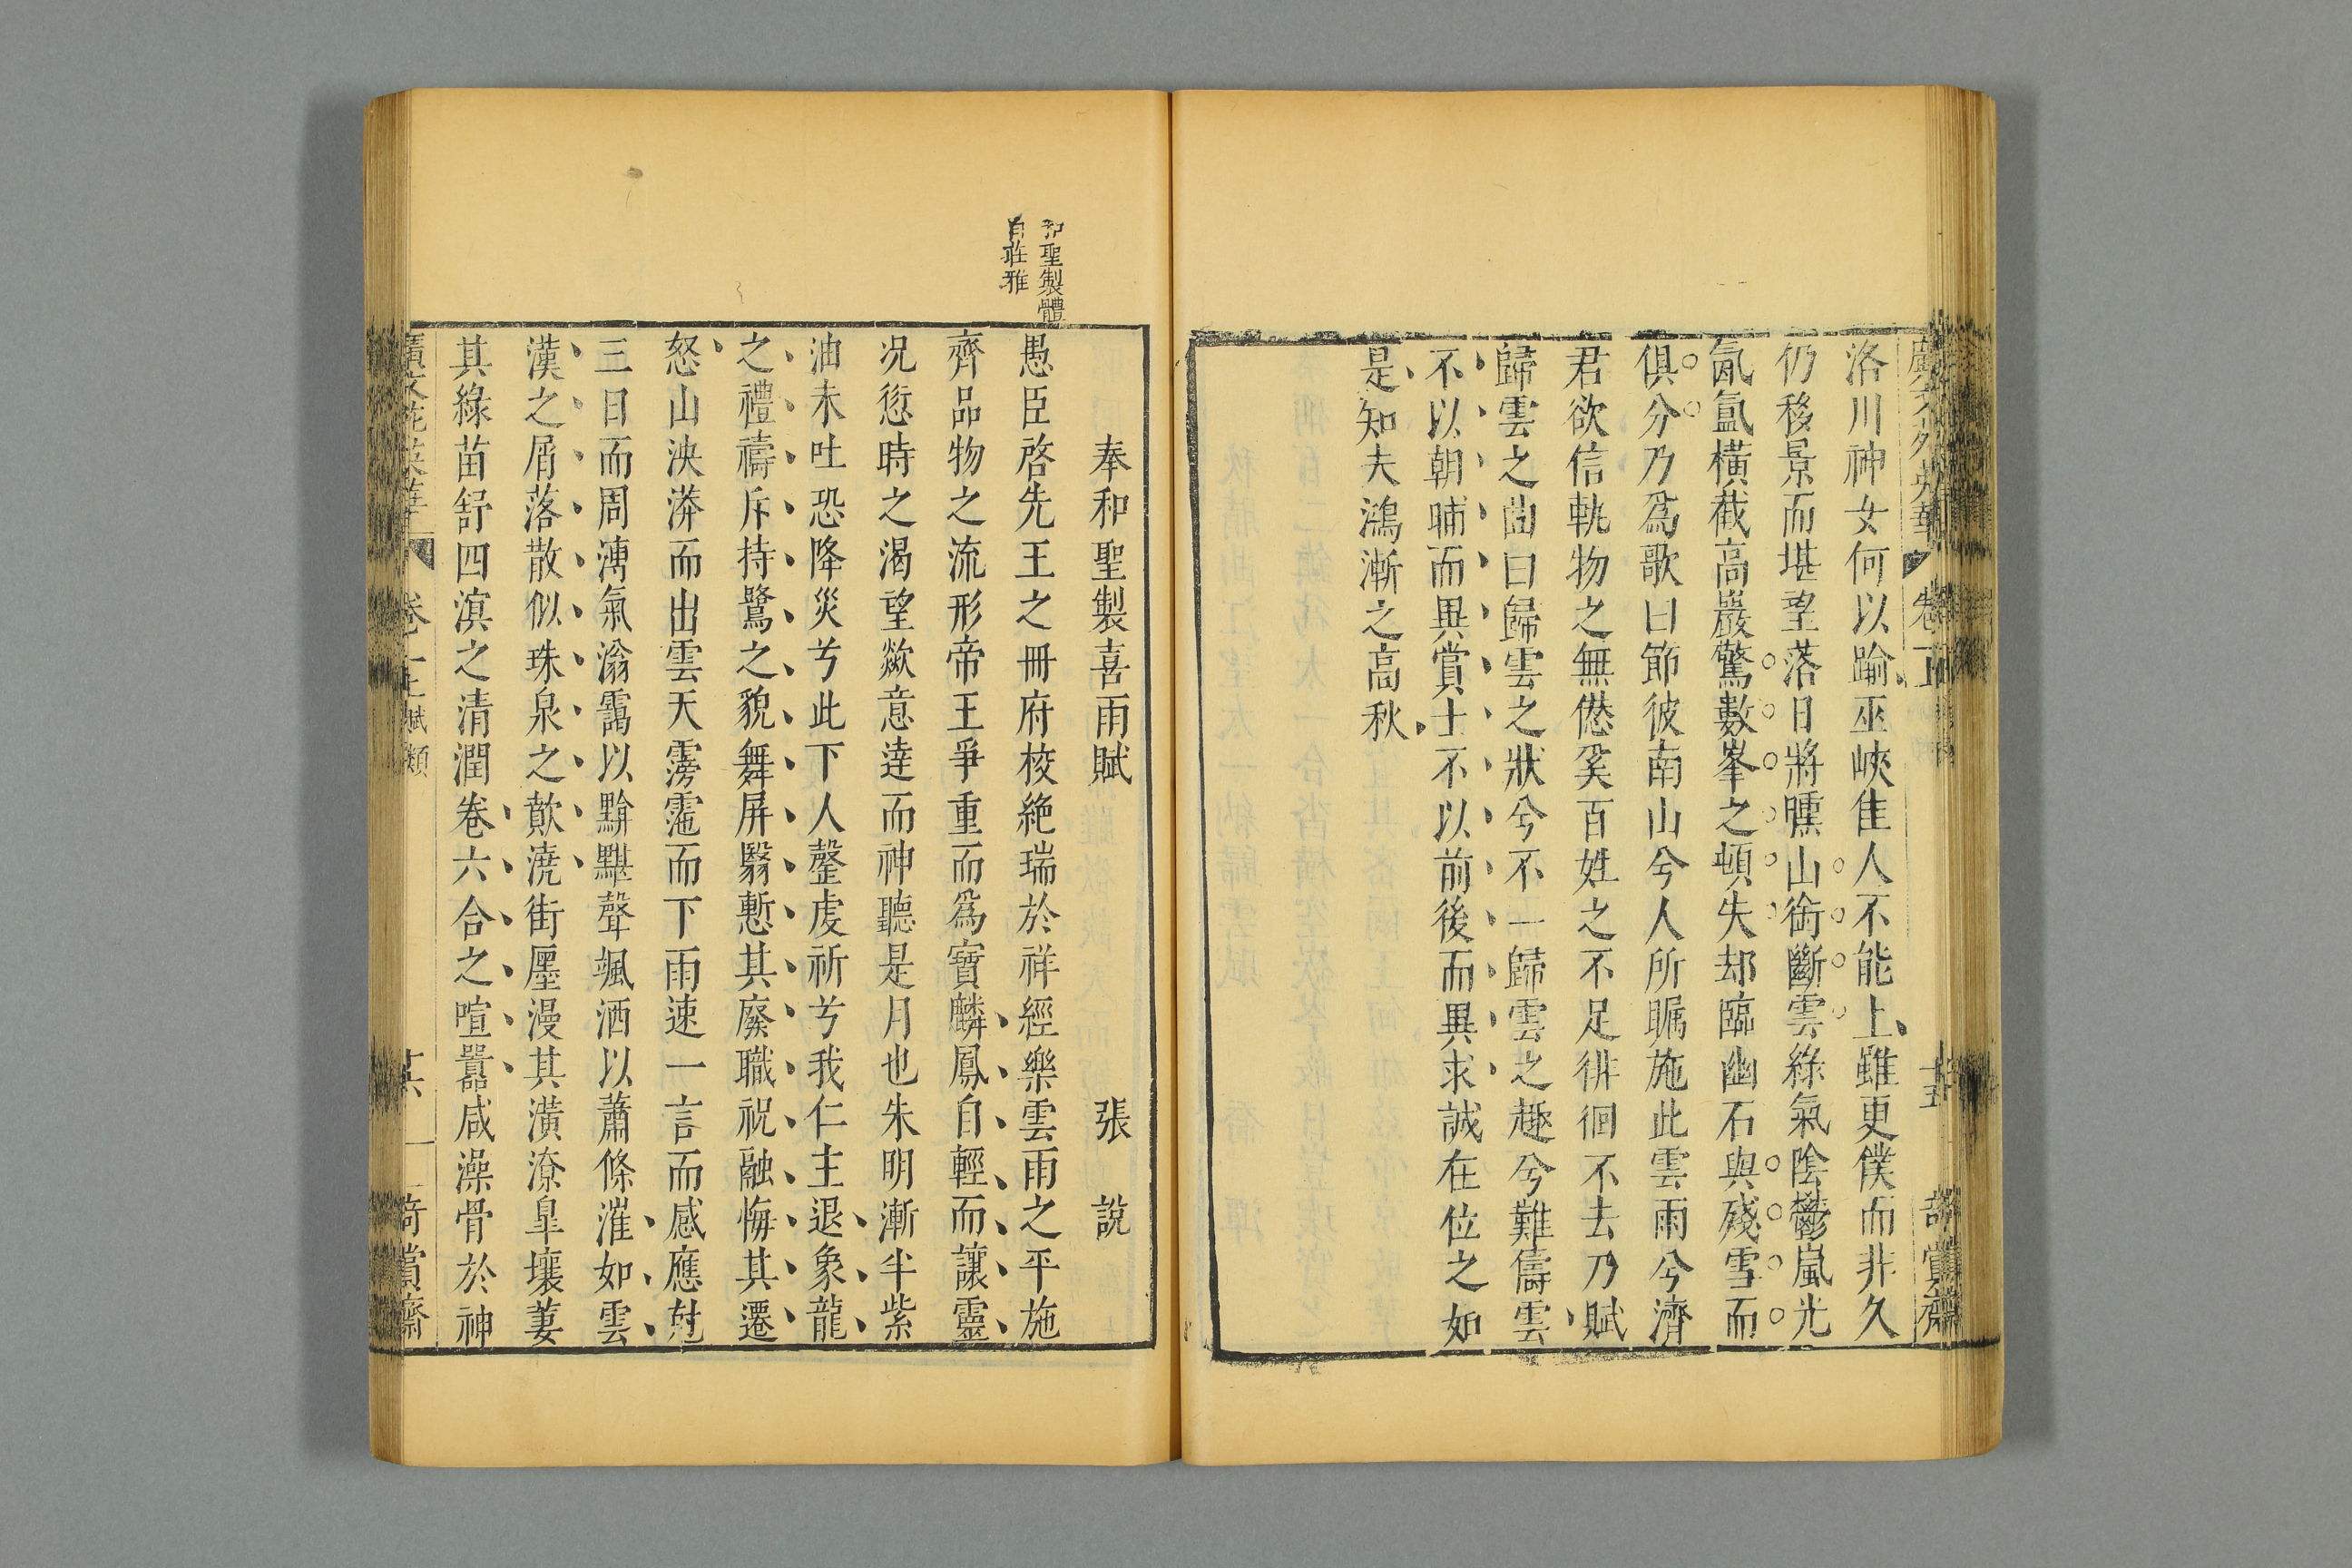 洛川神女何以踰巫峽佳人不能上雖更僕而非久
仍移景而堪望落日將曛山銜斷雲綠氣陰鬱嵐光
氤氳橫截高巖驚數峯之頓失却臨幽石與殘雪而
俱分乃爲歌曰節彼南山兮人所矚施此雲雨兮濟
君欲信軌物之無僁奚百姓之不足徘徊不去乃賦
歸雲之曲曰歸雲之狀兮不一歸雲之趣兮難儔雲
不以朝晡而異賞士不以前後而異求誠在位之如
是知夫鴻漸之高秋
和聖製體
自莊雅
奉和聖製喜雨賦 張說
愚臣啓先王之冊府校絶瑞於祥經樂雲雨之平施
齊品物之流形帝王爭重而爲寶麟鳳自輕而讓靈
况愆時之渴望歘意達而神聽是月也朱明漸半紫
油未吐恐降災兮此下人罄虔祈兮我仁主退象龍
之禮禱斥持鷺之貌舞屏翳慙其廢職祝融悔其遷
怒山泱漭而出雲天霶霈而下雨速一言而感應尅
三日而周溥氣滃靄以黭黮聲颯洒以蕭條漼如雲
漢之屑落散似珠泉之歕澆街廛漫其潢潦臯壤萋
其綠苗舒四溟之清潤卷六合之喧囂咸澡骨於神